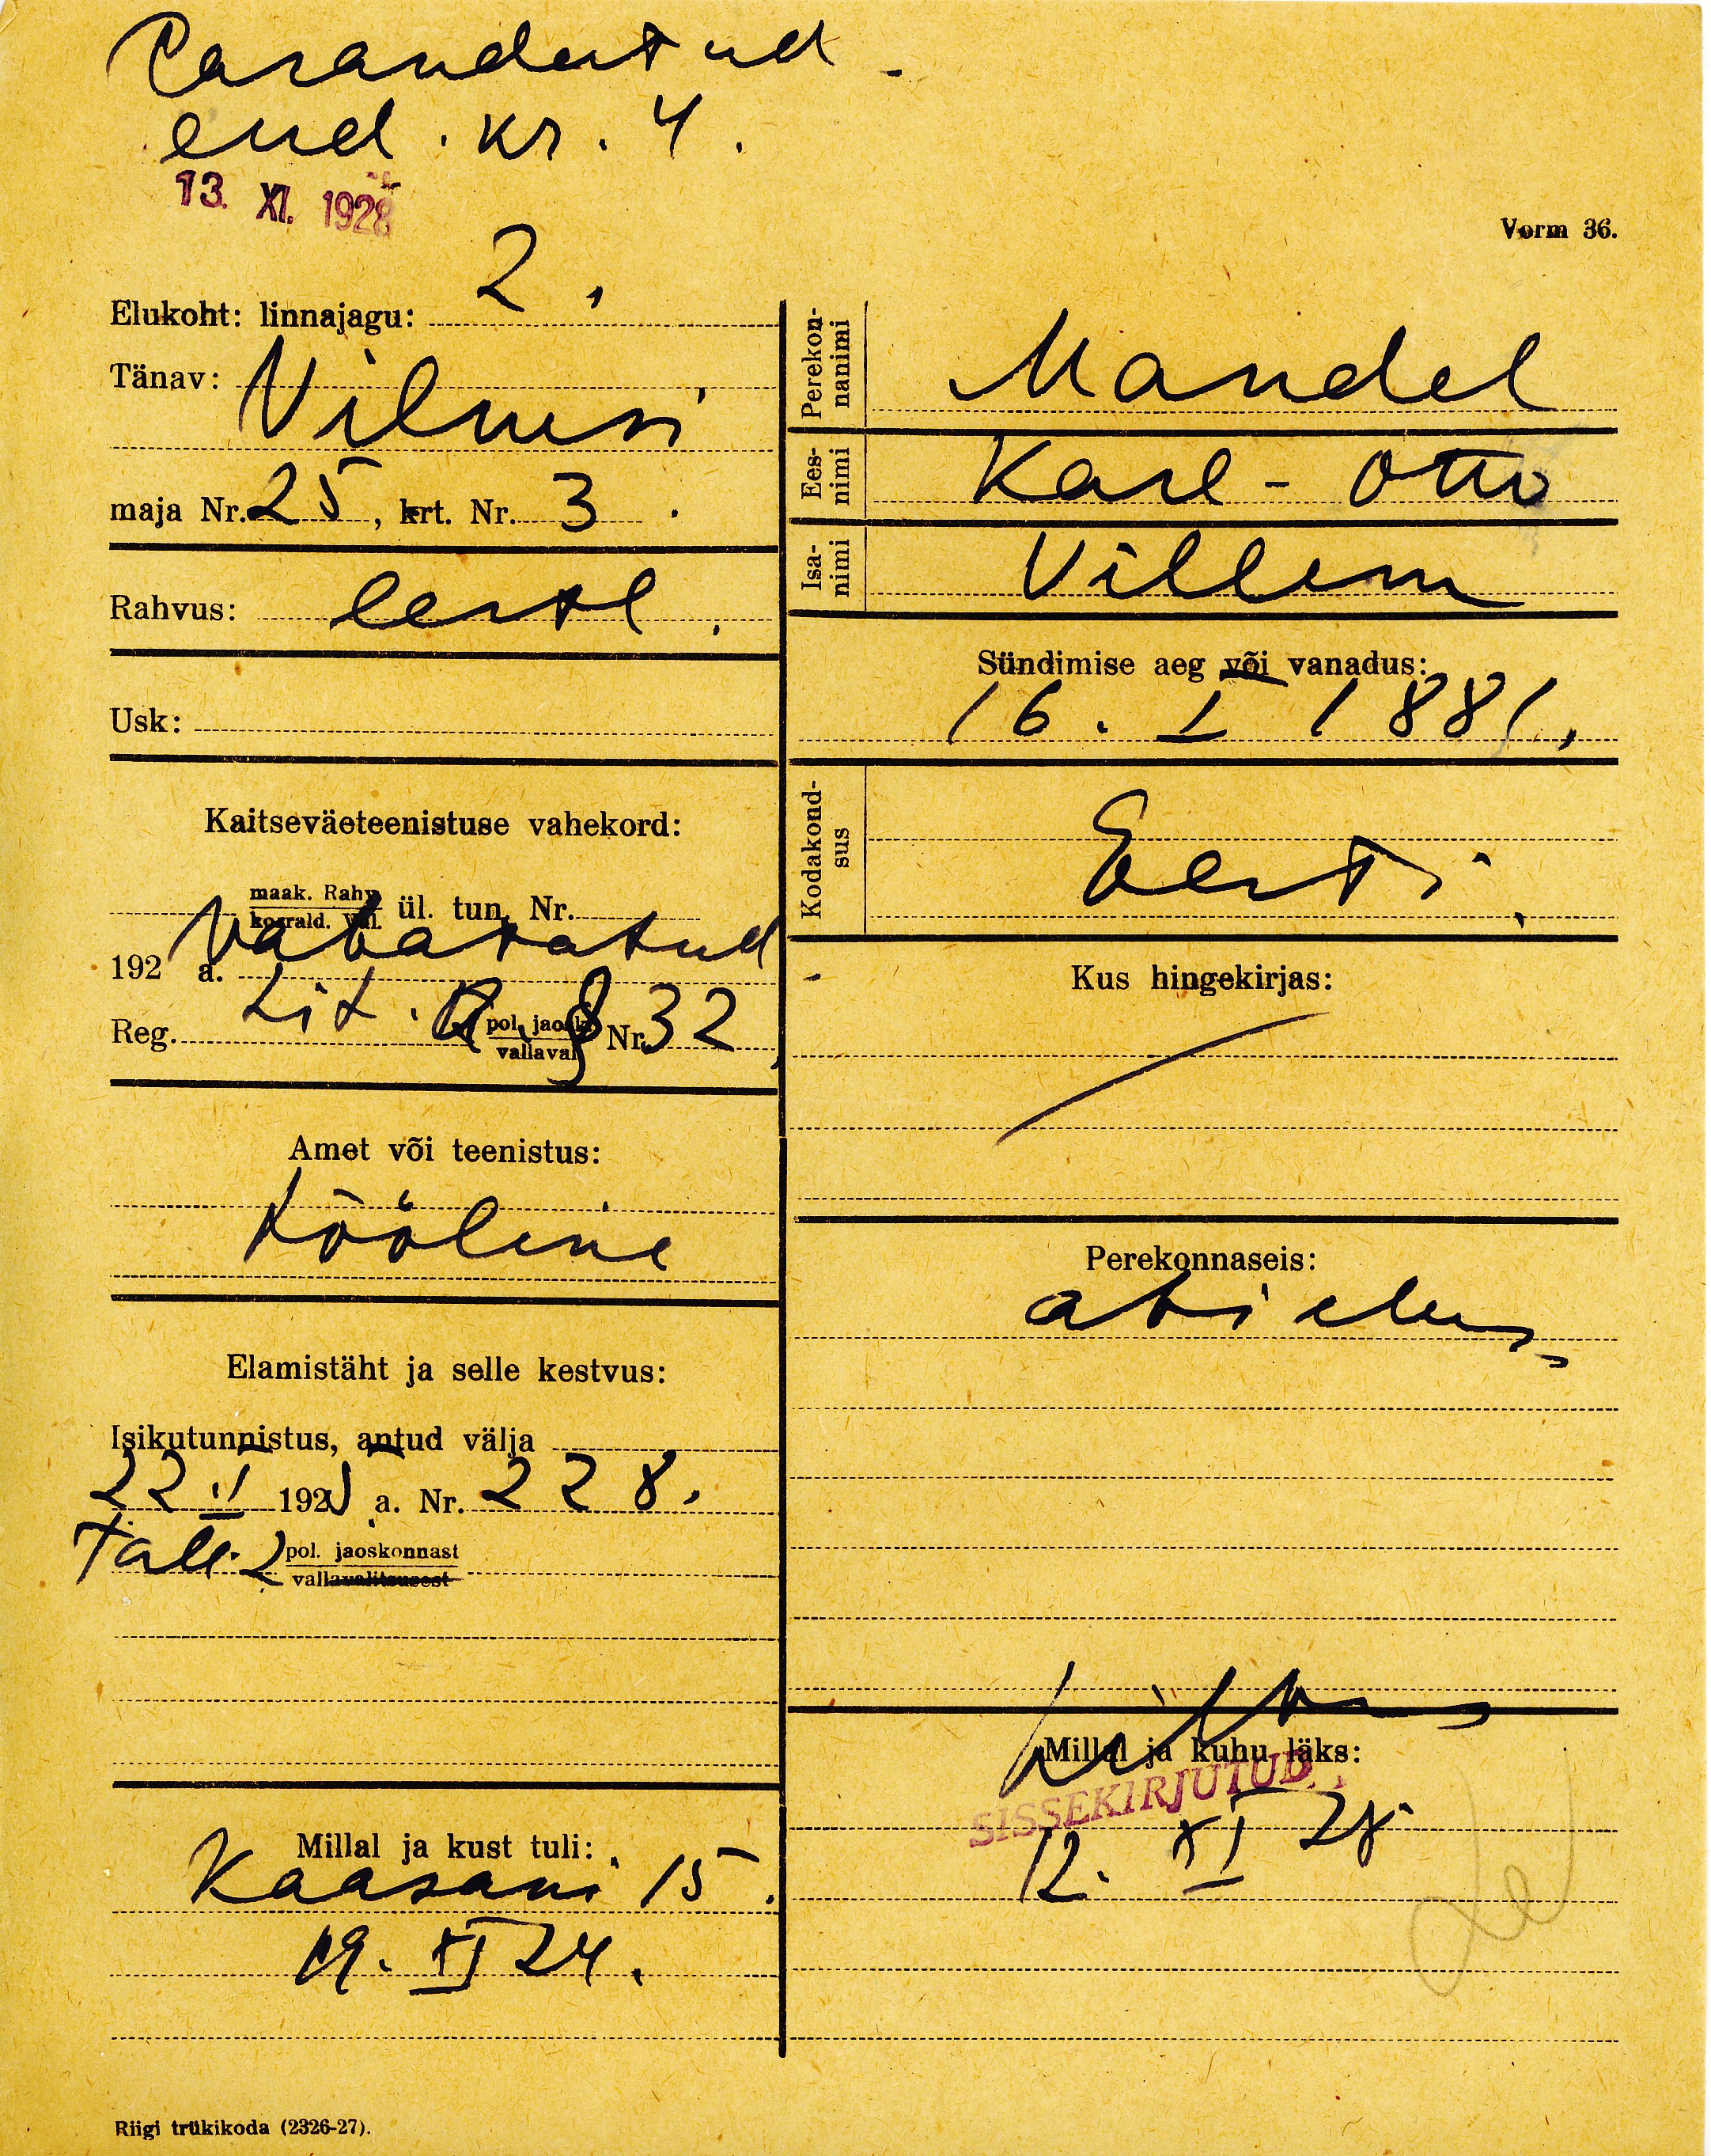 Parandatud.
end. kr. 4.
13. XI. 1928
Vorm 36.
Elukoht: linnajagu: 2.
Tänav: Vilmsi
maja Nr. 25, krt. Nr. 3.
Rahvus: eestl.
Usk:
Kaitseväeteenistuse vahekord:
maak. Rahv.
korrald. Väl. ül. tun. Nr.
192 a. Vabastatud
Reg. Lit. A § pol. jaosk. Nr. 32
vallaval.
Amet või teenistus:
tööline
Elamistäht ja selle kestvus:
Isikutunnistus, antud välja
22 192 a. Nr. 228.
Tall. 2 pol. jaoskonnast
vallavalitsusest
Millal ja kust tuli:
Kaasani 15.
19. XI 24.
Perekonnanimi
Mandel
Eesnimi
Karl-Otto
Isanimi
Villem
Sündimise aeg või vanadus:
16. I 1881.
Kodakondsus
Eesti.
Kus hingekirjas:
Perekonnaseis:
abielus
Millal ja kuhu läks:
SISSEKIRJUTUD
12. XI 28.
Riigi trükikoda (2326-27).